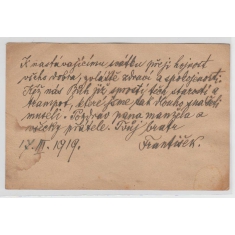 K nastávajícímu svátku přeji hojnost
všeho dobra, zvláště zdraví a spokojenosti.
Kéž nás Bůh již sprostí těch starostí a
trampot, které jsme tak dlouho snášeti
museli. Pozdrav pana manžela a
všecky přátele. Tvůj bratr
12. III. 1919. František.